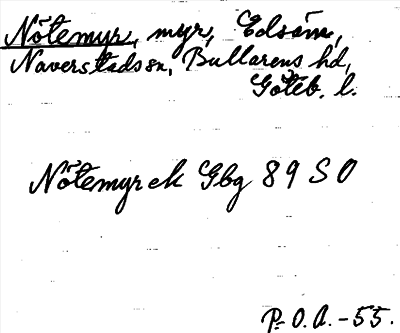 Nötemyr, myr, Edsäm,
Naverstads sn, Bullarens hd,
Göteb. l.
Nötemyr ek Gbg 89 S O
P. O. A. -55.